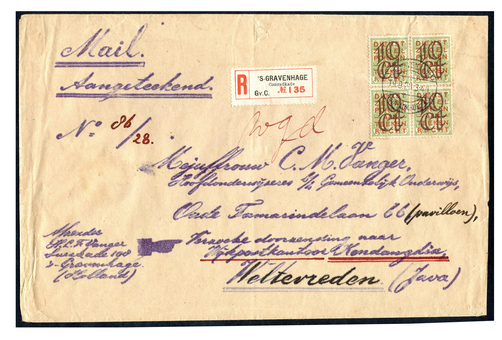 Mail.
Aangeteekend.
No 86/28.
R
'S-GRAVENHAGE
Conradkade
Gv.C. No 135
10 Ct
10 Ct
10 Ct
10 Ct
Mejuffrouw C. M. Vanger,
Hoofdonderwijzeres b/h Gemeentelijk Onderwijs,
Oude Tamarindelaan 66 (paviljoen),
Verzoeke doorzending naar
Hulppostkantoor Kondangdia,
Weltevreden (Java)
Afzender
Vanger
's-Gravenhage
(Holland)